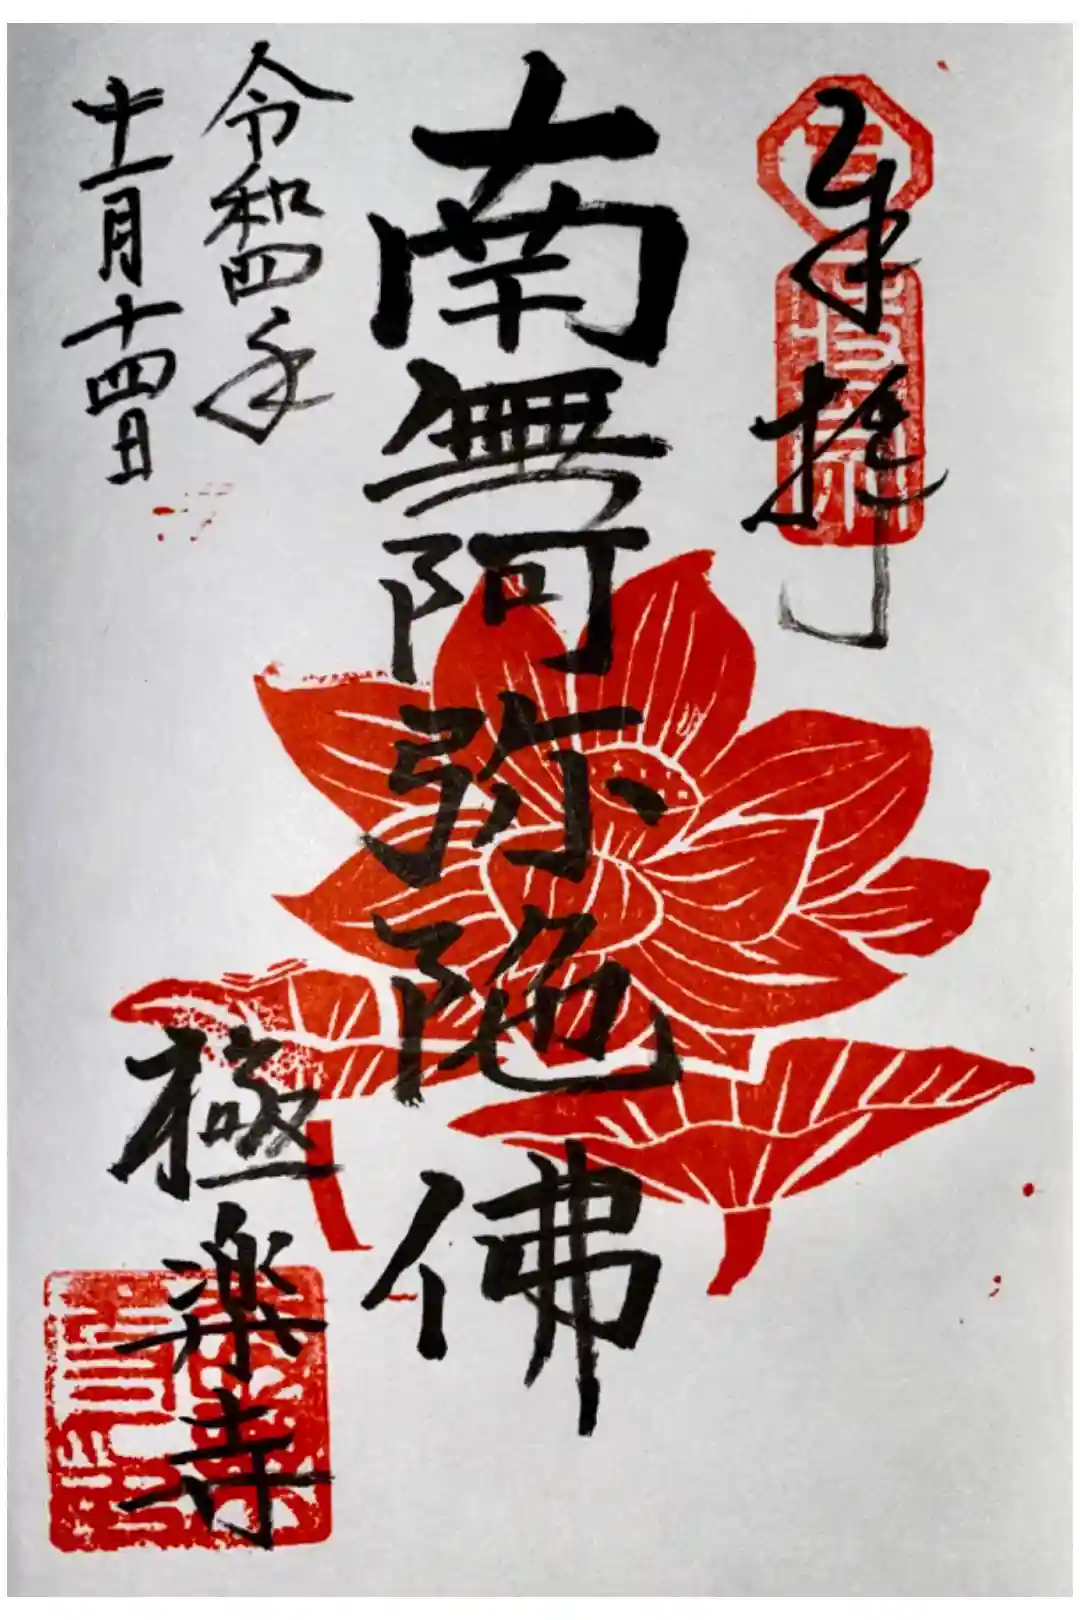 奉拝
南無阿弥陀佛
令和四年
十一月十四日
極楽寺